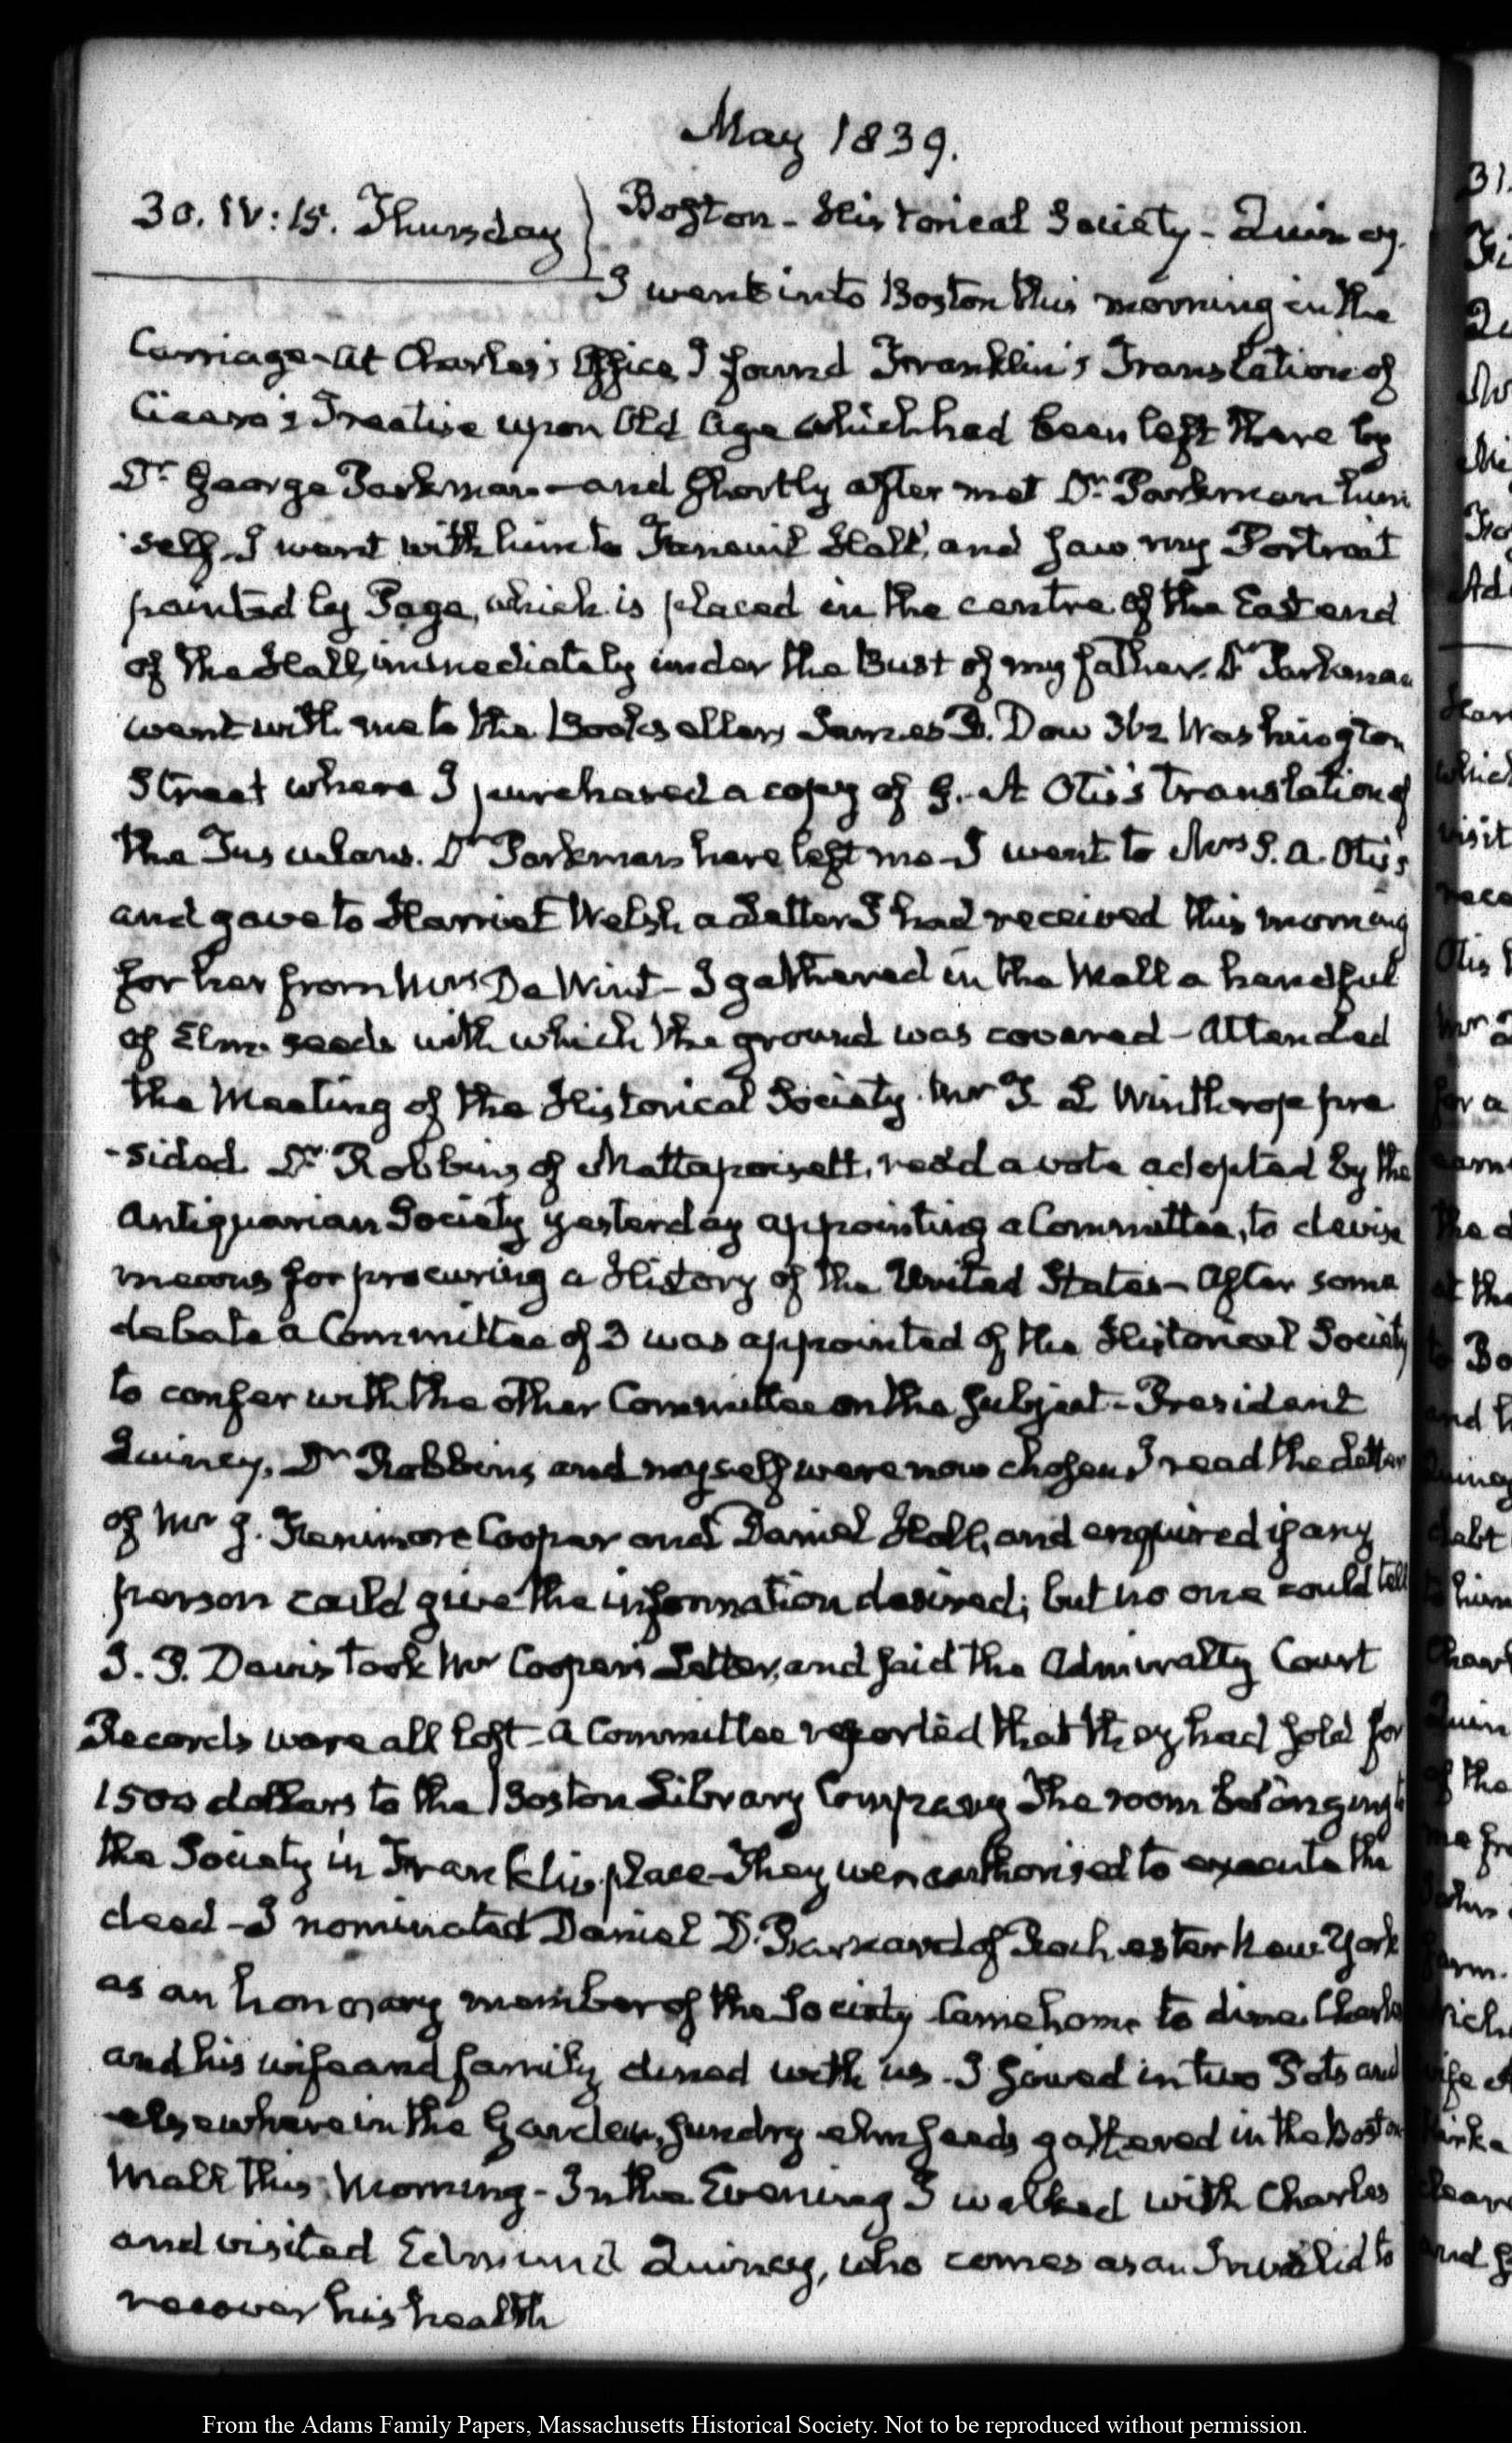 May 1839.
30. IV:15. Thursday } Boston - Historical Society - Quincy.
I went into Boston this morning in the
Carriage - At Charles's Office, I found Franklin's Translation of
Cicero's Treatise upon Old Age which had been left there by
Dr. George Parkman - and shortly after met Dr. Parkman him
self. I went with him to Faneuil Hall, and saw my Portrait
painted by Page, which is placed in the centre of the East end
of the Hall, immediately under the Bust of my father. Dr Parkman
went with me to the Booksellers James B. Dow 362 Washington
Street where I purchased a copy of G. A Otis's translation of
the Tusculans. Dr Parkman here left me - I went to Mrs S. A. Otis's
and gave to Harriet Welsh a Letter I had received this morning
for her from Mrs De Wint - I gathered in the Mall a handful
of Elm seeds with which the ground was covered - Attended
the Meeting of the Historical Society. Mr T. L Winthrop pre
-sided. Dr Robbins of Mattapoisett, read a vote adopted by the
Antiquarian Society yesterday appointing a Committee, to devise
means for procuring a History of the United States - After some
debate a Committee of 3 was appointed of the Historical Society
to confer with the other Committee on the subject - President
Quincy, Dr Robbins, and myself were now chosen, I read the Letter
of Mr J. Fenimore Cooper and Daniel Hall, and enquired if any
person could give the information desired; but no one could tell
J. P. Davis took Mr Cooper's Letter, and said the Admiralty Court
Records were all lost - A Committee reported that they had sold for
1500 dollars to the Boston Library Company The room belonging to
the Society in Franklin place - They were authorised to execute the
deed - I nominated Daniel D. Barnard of Rochester New York
as an honorary member of the Society Came home to dine. Charles
and his wife and family dined with us - I sowed in two Pots and
elsewhere in the Garden, sundry elm seeds gathered in the Boston
Mall this Morning - In the Evening I walked with Charles
and visited Edmund Quincy, who comes as an Invalid to
recover his health
From the Adams Family Papers, Massachusetts Historical Society. Not to be reproduced without permission.